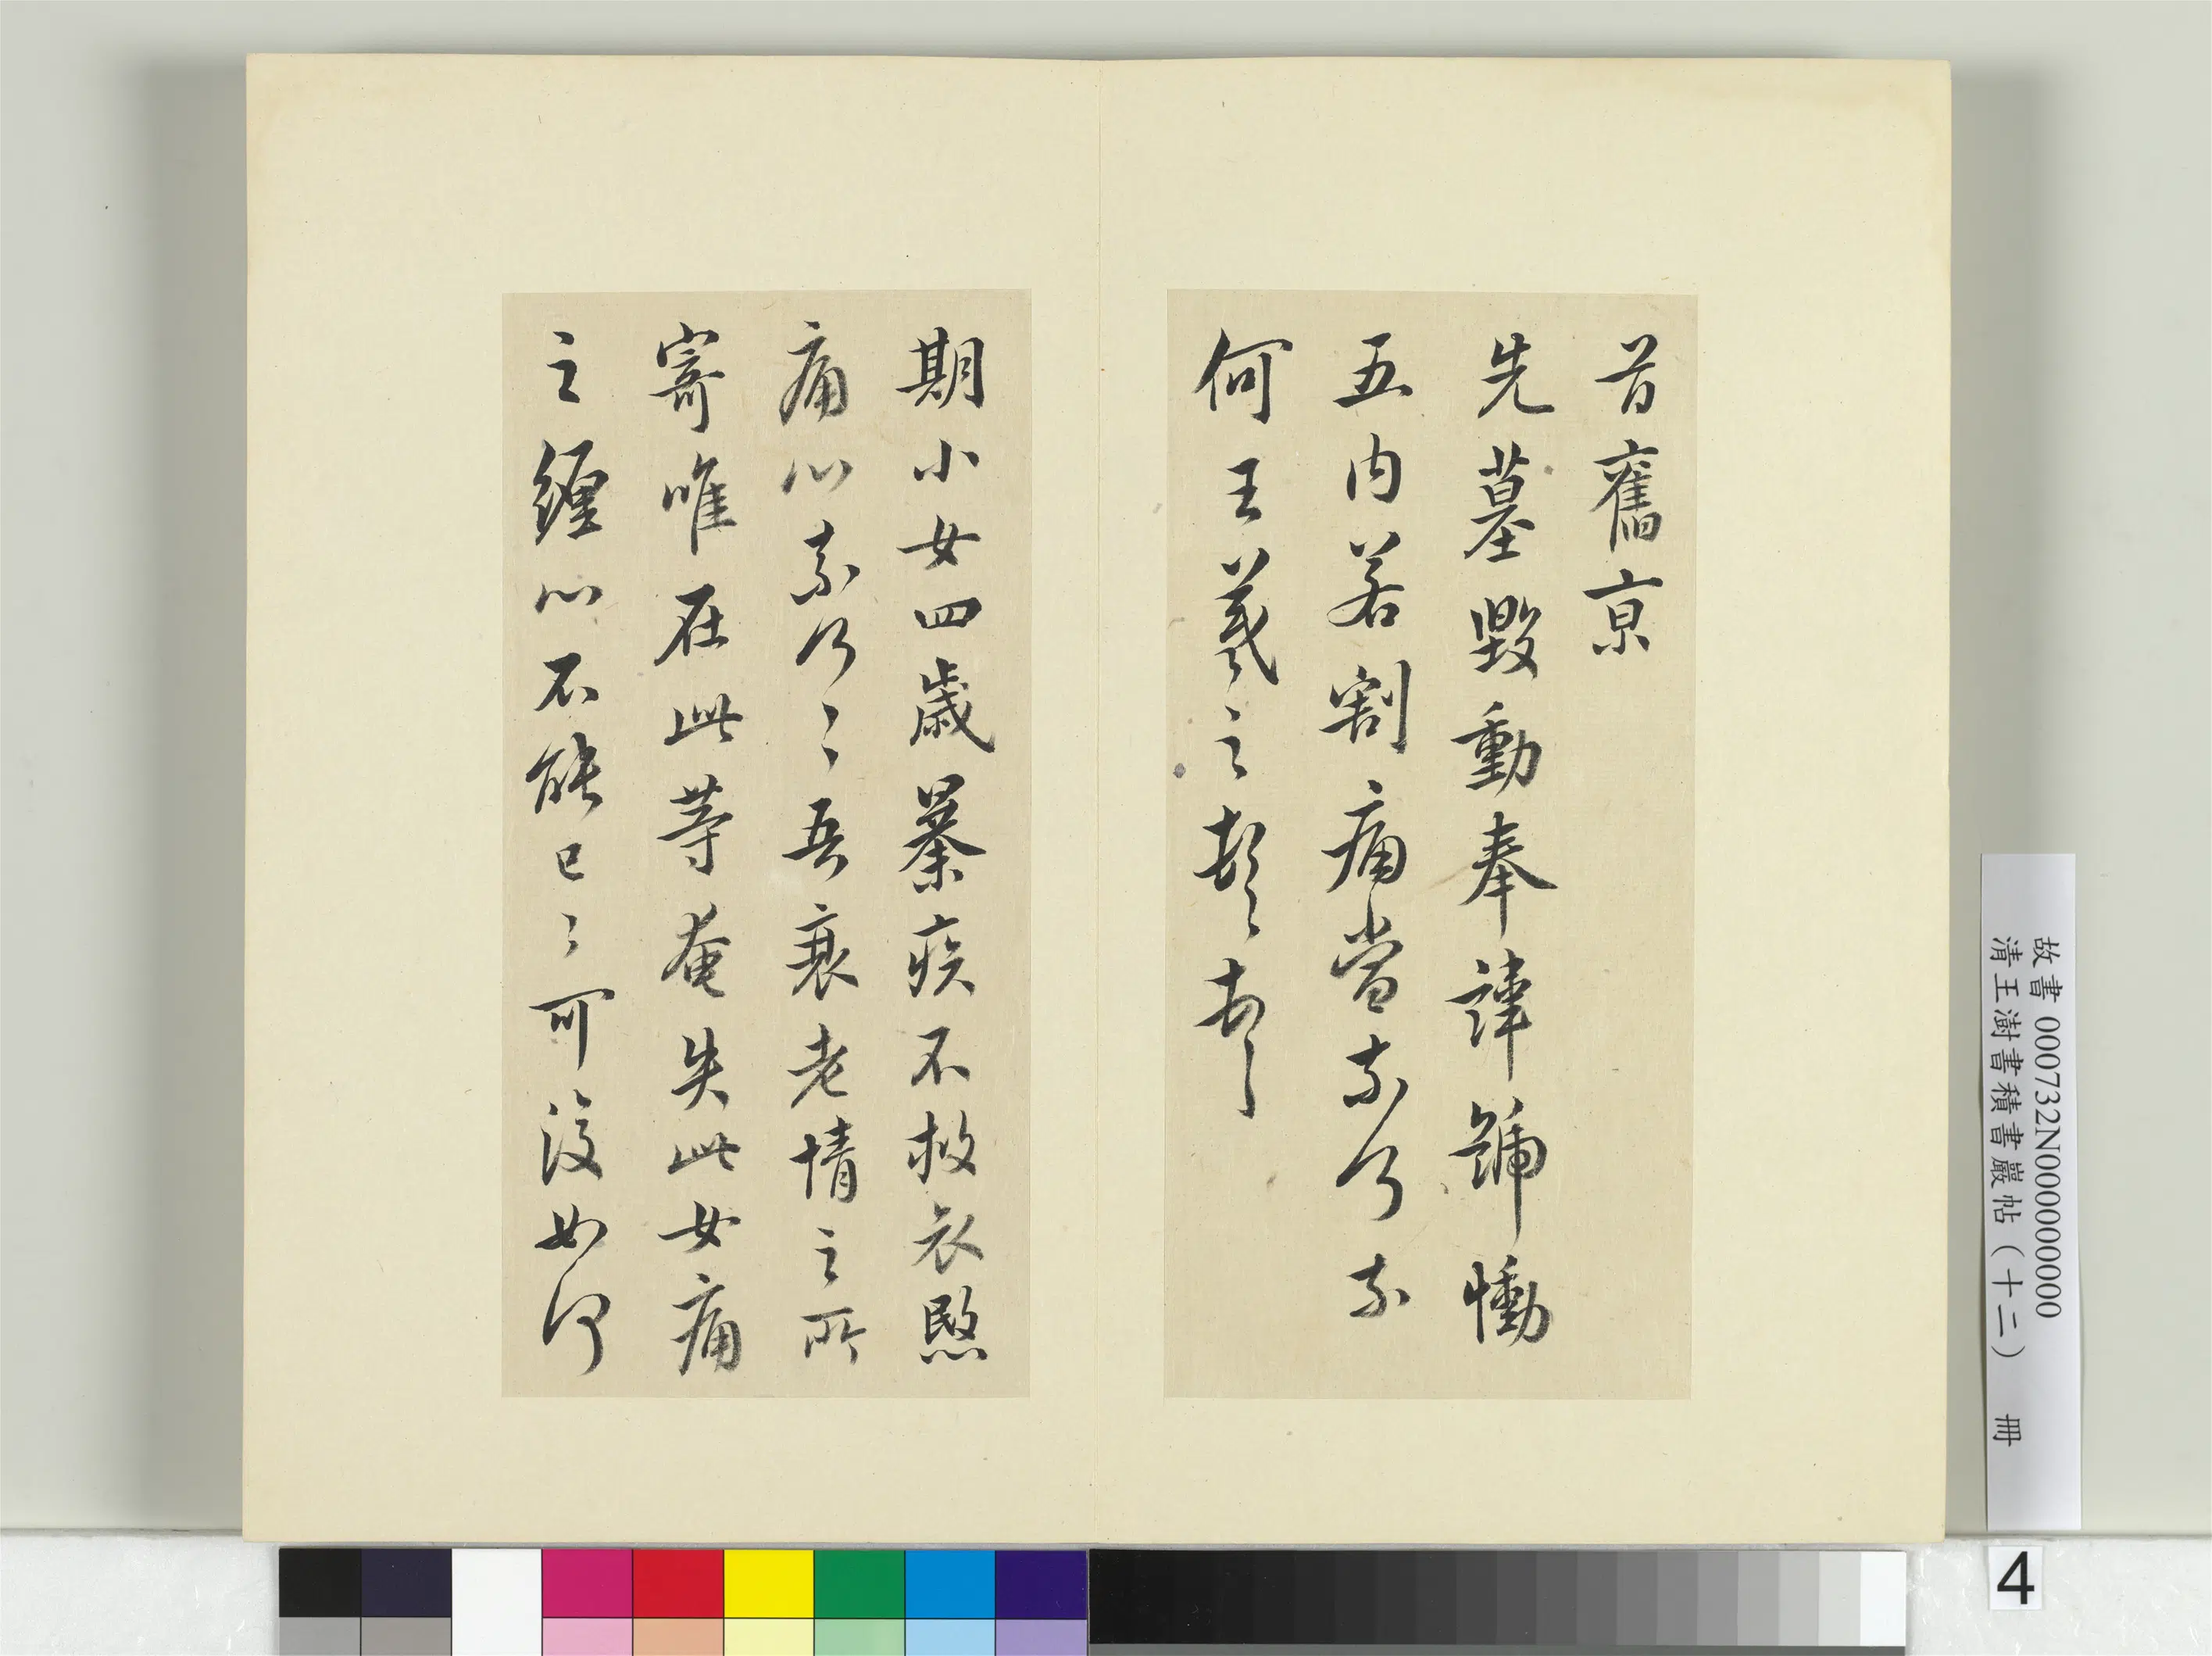 昔舊亰
先墓毀動奉諱號慟
五內若割痛當奈何奈
何王羲之頓首
期小女四歲暴疾不救哀愍
痛心奈何々々吾衰老情之所
寄唯在此等奄失此女痛
之纏心不能已々可復如何
故書 000732N000000000
清王澍書積書巖帖（十二） 冊
4